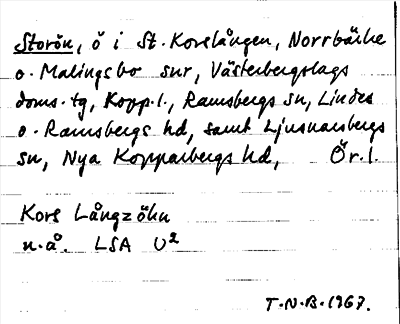 Storön, ö i St. Korslången, Norrbärke
o. Malingsbo snr, Västerbergslags
doms. tg, Kopp. l., Ramsbergs sn, Lindes
o. Ramsbergs hd, samt Ljusnarsbergs
sn, Nya Kopparbergs hd, Ör. l.
Kors Långzöhn
n.å. LSA U²
T.N.B. 1967.